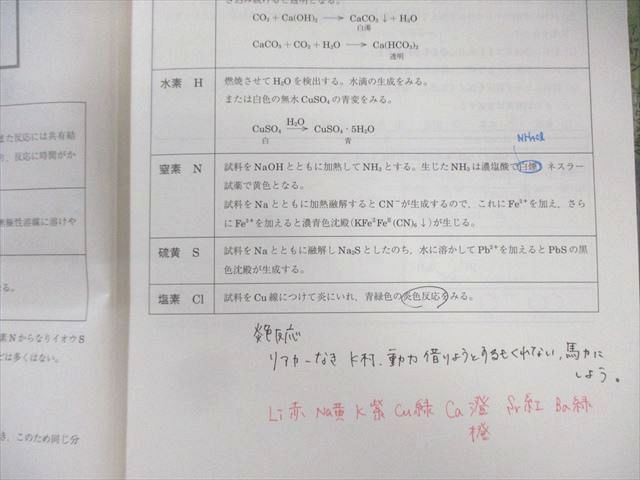 CO₂ + Ca(OH)₂ → CaCO₃↓ + H₂O
白濁
CaCO₃ + CO₂ + H₂O → Ca(HCO₃)₂
透明
水素 H
燃焼させてH₂Oを検出する。水滴の生成をみる。
または白色の無水CuSO₄の青変をみる。
H₂O
CuSO₄ → CuSO₄・5H₂O
白 青
NH₄Cl
窒素 N
試料をNaOHとともに加熱してNH₃とする。生じたNH₃は濃塩酸で白煙、ネスラー
試薬で黄色となる。
試料をNaとともに加熱融解するとCN⁻が生成するので、これにFe³⁺を加え、さら
にFe³⁺を加えると濃青色沈殿(KFe²Feᴵᴵ(CN)₆↓)が生じる。
硫黄 S
試料をNaとともに融解しNa₂Sとしたのち、水に溶かしてPb²⁺を加えるとPbSの黒
色沈殿が生成する。
塩素 Cl
試料をCu線につけて炎にいれ、青緑色の炎色反応をみる。
炎色反応
リアカーなき K村、動力 借りようとするもくれない、馬力に
しよう。
Li赤 Na黄 K紫 Cu緑 Ca 澄 Sr紅 Ba緑
橙
また反応には共有結
、反応に時間がか
無極性溶媒に溶けや
る。
素NからなりイオウS
どは多くはない。
き、このため同じ分